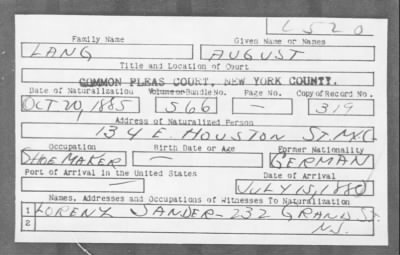 L520
Family Name Given Name or Names
LANG AUGUST
Title and Location of Court
COMMON PLEAS COURT, NEW YORK COUNTY.
Date of Naturalization Volume or Bundle No. Page No. Copy of Record No.
OCT 20, 1885 566 — 319
Address of Naturalized Person
134 E. HOUSTON ST. N.Y.C.
Occupation Birth Date or Age Former Nationality
SHOEMAKER — GERMAN
Port of Arrival in the United States Date of Arrival
— JULY 15, 1880
Names, Addresses and Occupations of Witnesses To Naturalization
1 LORENZ SANDER - 232 GRAND ST.
2 N.J.